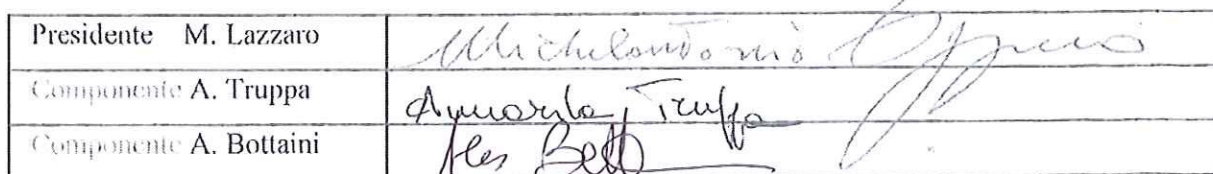 Presidente M. Lazzaro Michelantonio
Componente A. Truppa Annarita Truppa
Componente A. Bottaini Ales Bott